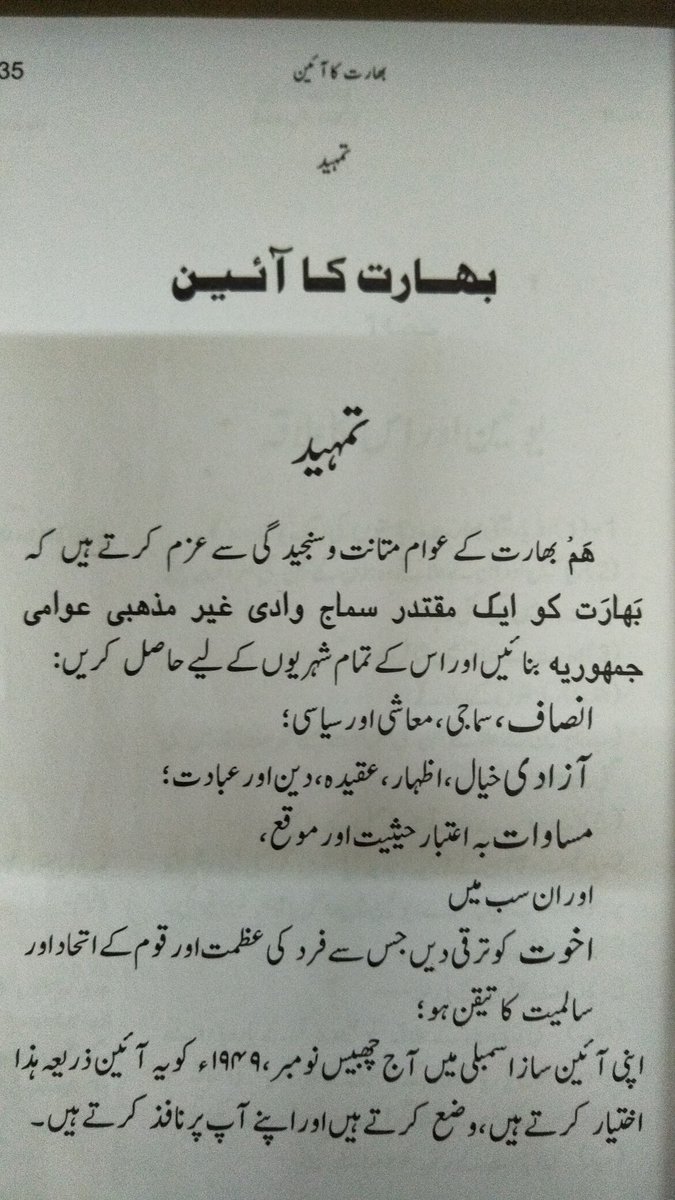 35
بھارت کا آئین
تمہید
بھارت کا آئین
تمہید
ہَمْ بھارت کے عوام متانت و سنجیدگی سے عزم کرتے ہیں کہ
بَھارَت کو ایک مقتدر سماج وادی غیر مذہبی عوامی
جمہوریہ بنائیں اور اس کے تمام شہریوں کے لیے حاصل کریں:
انصاف، سماجی، معاشی اور سیاسی؛
آزادی خیال، اظہار، عقیدہ، دین اور عبادت؛
مساوات بہ اعتبار حیثیت اور موقع،
اور ان سب میں
اخوت کو ترقی دیں جس سے فرد کی عظمت اور قوم کے اتحاد اور
سالمیت کا تیقن ہو؛
اپنی آئین ساز اسمبلی میں آج چھبیس نومبر، ۱۹۴۹ء کو یہ آئین ذریعہ ہذا
اختیار کرتے ہیں، وضع کرتے ہیں اور اپنے آپ پر نافذ کرتے ہیں۔